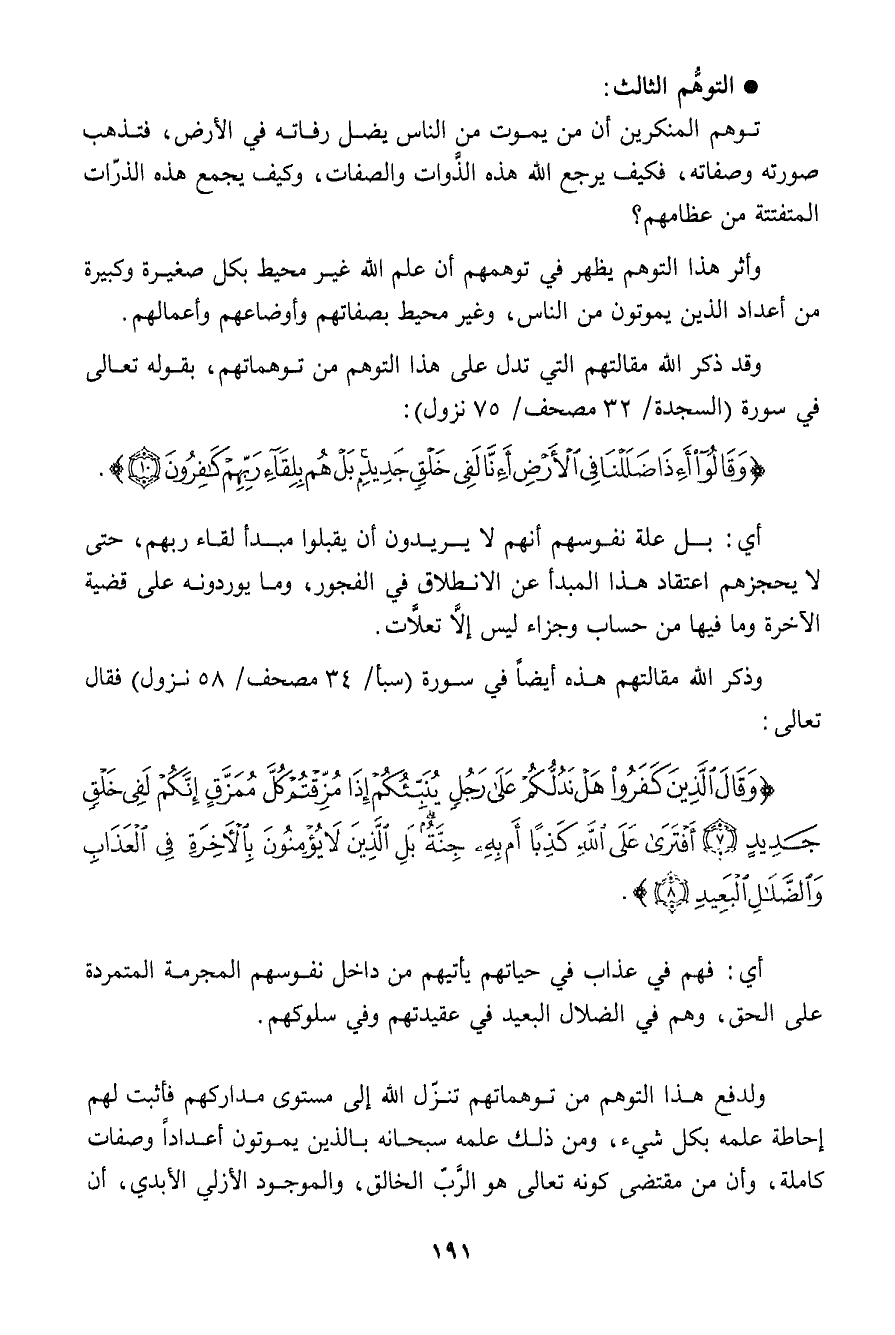 ● التوهُّم الثالث:
توهم المنكرين أن من يموت من الناس يضل رفاته في الأرض، فتذهب
صورته وصفاته، فكيف يرجع الله هذه الذَّوات والصفات، وكيف يجمع هذه الذرّات
المتفتتة من عظامهم؟
وأثر هذا التوهم يظهر في توهمهم أن علم الله غير محيط بكل صغيرة وكبيرة
من أعداد الذين يموتون من الناس، وغير محيط بصفاتهم وأوضاعهم وأعمالهم.
وقد ذكر الله مقالتهم التي تدل على هذا التوهم من توهماتهم، بقوله تعالى
في سورة (السجدة/ ٣٢ مصحف/ ٧٥ نزول):
﴿وَقَالُوٓا۟ أَءِذَا ضَلَلْنَا فِى ٱلْأَرْضِ أَءِنَّا لَفِى خَلْقٍ جَدِيدٍۭ ۚ بَلْ هُم بِلِقَآءِ رَبِّهِمْ كَـٰفِرُونَ ۝١٠﴾.
أي: بل علة نفوسهم أنهم لا يريدون أن يقبلوا مبدأ لقاء ربهم، حتى
لا يحجزهم اعتقاد هذا المبدأ عن الانطلاق في الفجور، وما يوردونه على قضية
الآخرة وما فيها من حساب وجزاء ليس إلَّا تعلَّات.
وذكر الله مقالتهم هذه أيضاً في سورة (سبأ/ ٣٤ مصحف/ ٥٨ نزول) فقال
تعالى:
﴿وَقَالَ ٱلَّذِينَ كَفَرُوا۟ هَلْ نَدُلُّكُمْ عَلَىٰ رَجُلٍ يُنَبِّئُكُمْ إِذَا مُزِّقْتُمْ كُلَّ مُمَزَّقٍ إِنَّكُمْ لَفِى خَلْقٍ
جَدِيدٍ ۝٧ أَفْتَرَىٰ عَلَى ٱللَّهِ كَذِبًا أَم بِهِۦ جِنَّةٌۢ ۗ بَلِ ٱلَّذِينَ لَا يُؤْمِنُونَ بِٱلْـَٔاخِرَةِ فِى ٱلْعَذَابِ
وَٱلضَّلَـٰلِ ٱلْبَعِيدِ ۝٨﴾.
أي: فهم في عذاب في حياتهم يأتيهم من داخل نفوسهم المجرمة المتمردة
على الحق، وهم في الضلال البعيد في عقيدتهم وفي سلوكهم.
ولدفع هذا التوهم من توهماتهم تنزّل الله إلى مستوى مداركهم فأثبت لهم
إحاطة علمه بكل شيء، ومن ذلك علمه سبحانه بالذين يموتون أعداداً وصفات
كاملة، وأن من مقتضى كونه تعالى هو الرَّبّ الخالق، والموجود الأزلي الأبدي، أن
١٩١